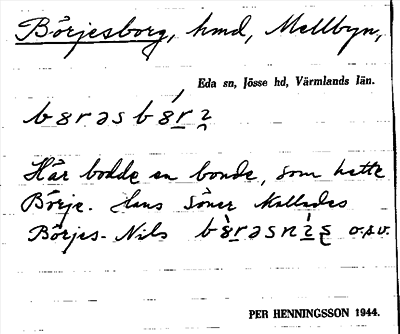 Börjesborg, hmd, Mellbyn,
Eda sn, Jösse hd, Värmlands län.
Här bodde en bonde, som hette
Börje. Hans söner kallades
Börjes-Nils o.s.v.
PER HENNINGSSON 1944.